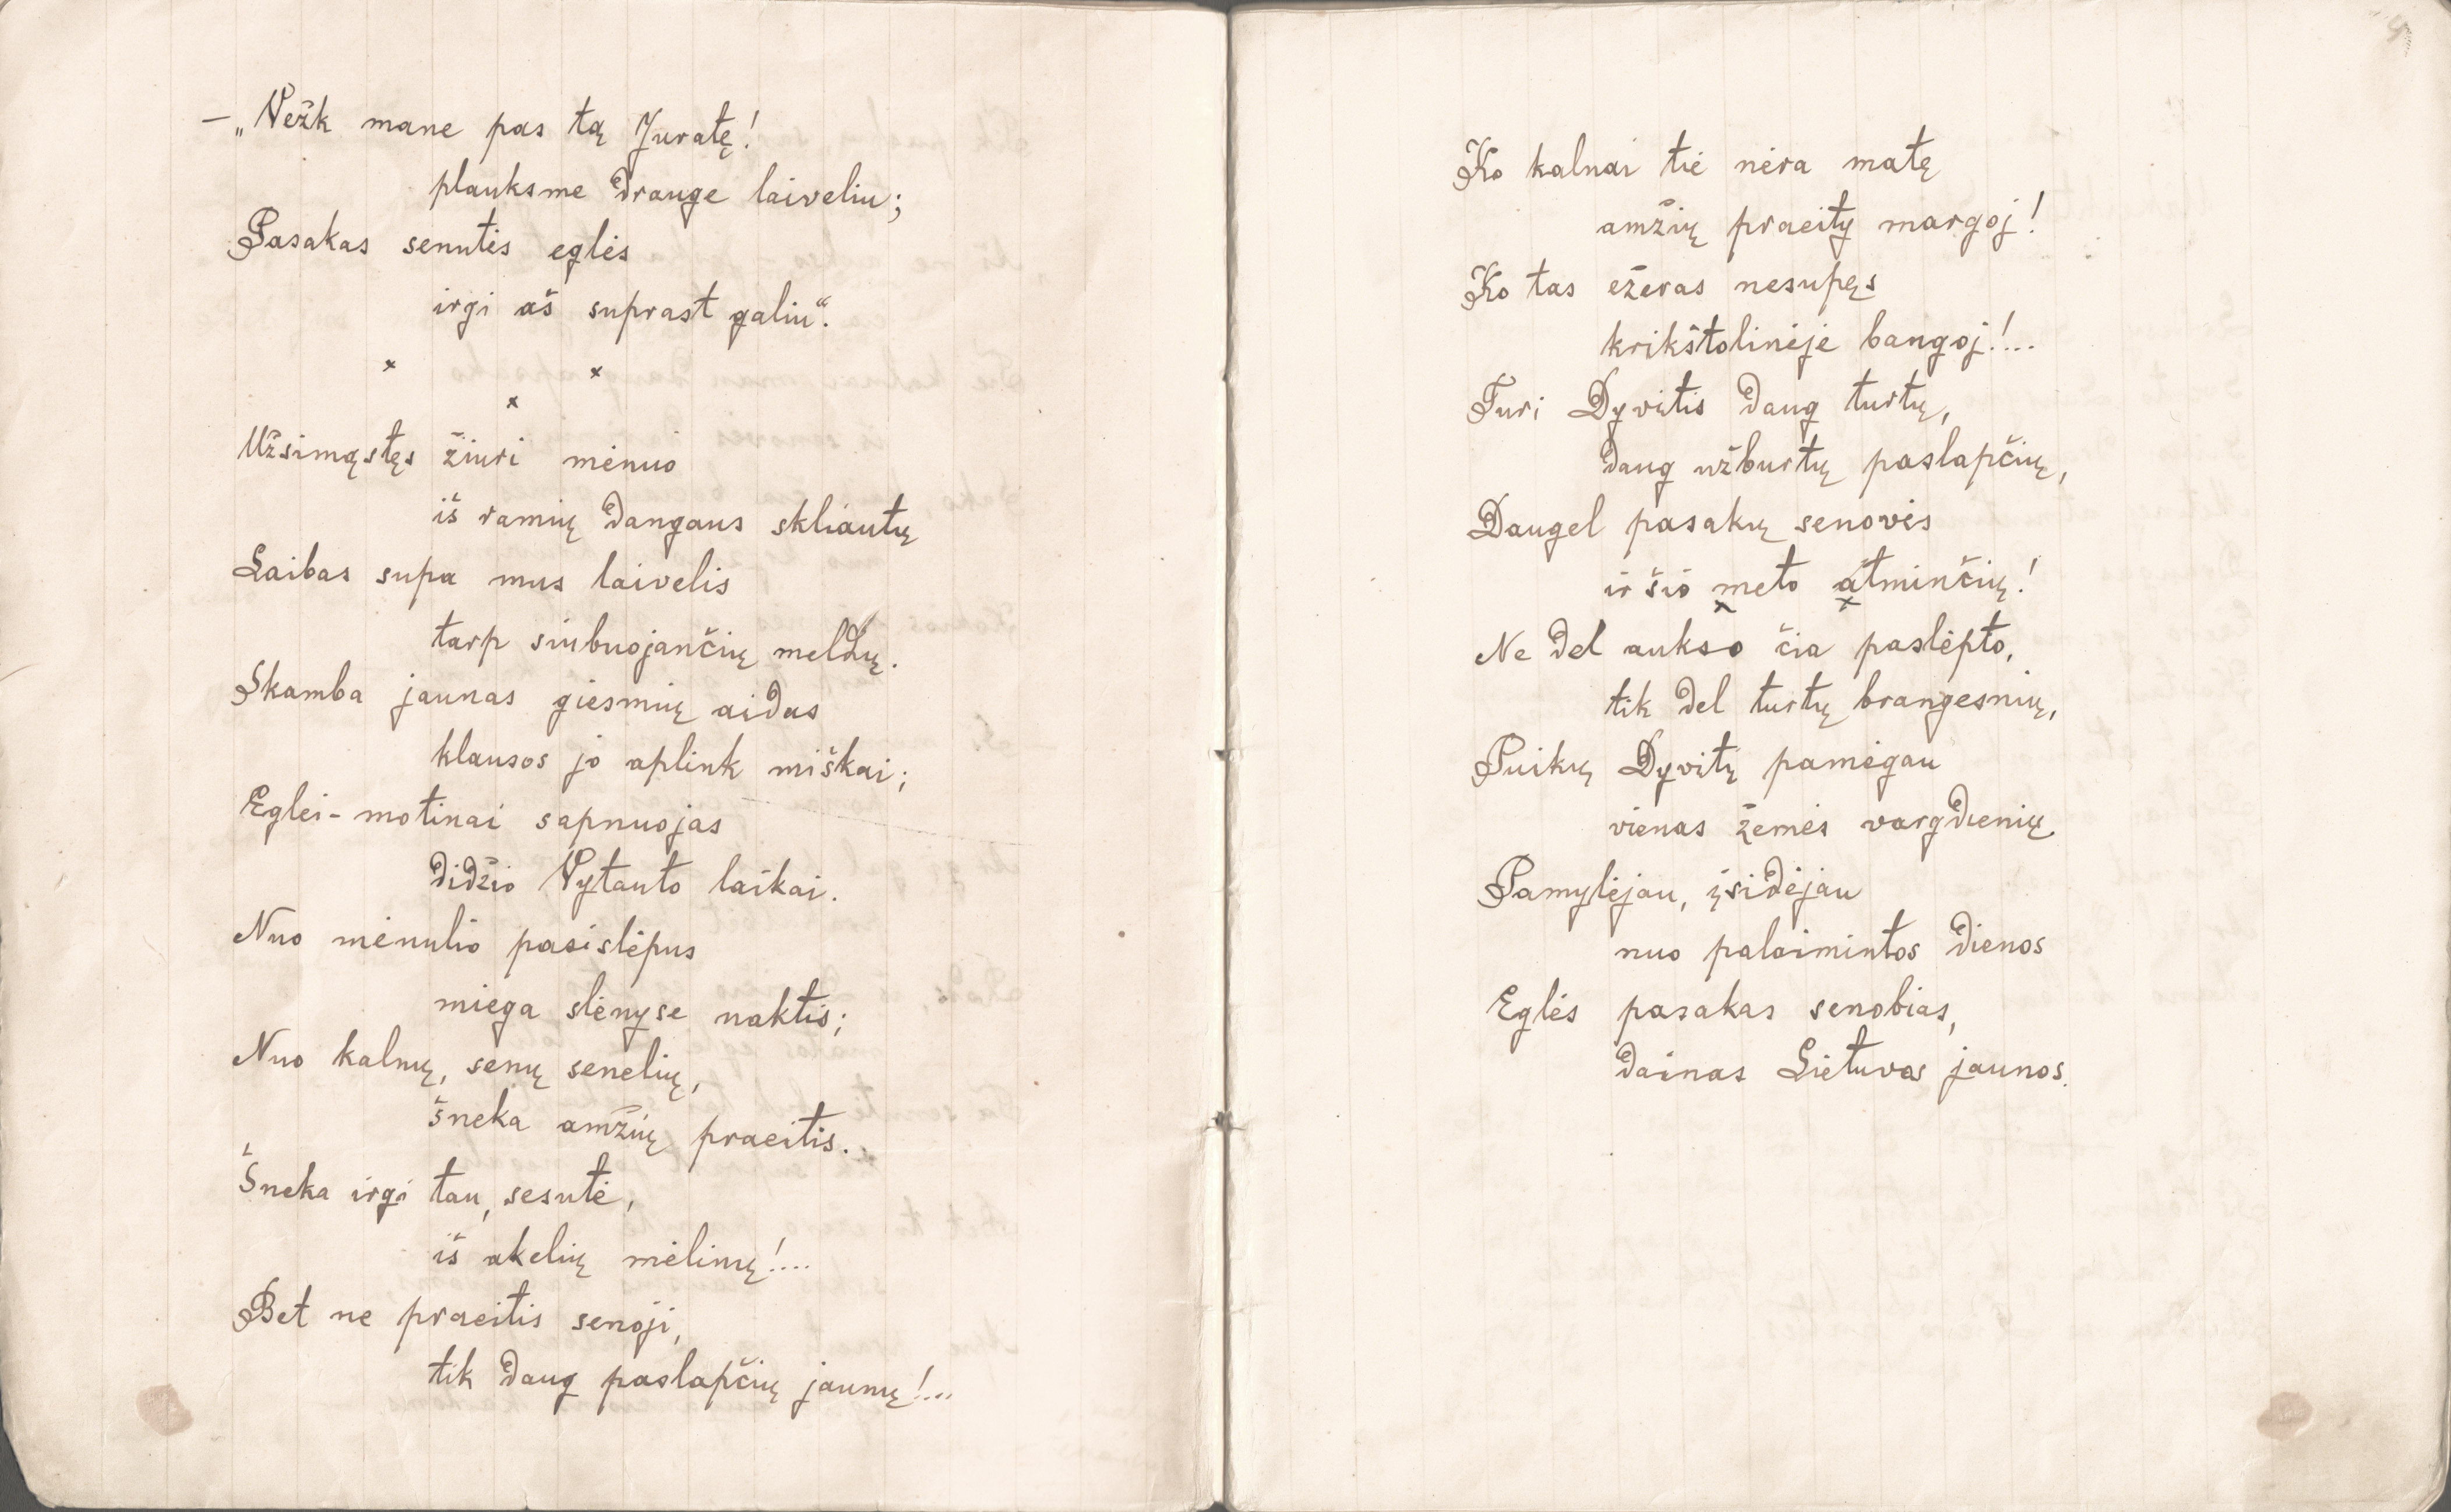 – „Vežk mane pas tą Juratę!
plauksme drauge laiveliu;
Pasakas senutės eglės
irgi aš suprast galiu“.
x x
x
Užsimąstęs žiuri mėnuo
iš ramių dangaus skliautų
Laibas supa mus laivelis
tarp siubuojančių meldų.
Skamba jaunas giesmių aidas
klausos jo aplink miškai;
Eglei-motinai sapnuojas
didžio Vytauto laikai.
Nuo mėnulio pasislėpus
miega slėnyse naktis;
Nuo kalnų, senų senelių,
šneka amžių praeitis.
Šneka irgi tau, sesutė,
iš akelių mėlinų!....
Bet ne praeitis senoji,
tik daug paslapčių jaunų!....
Ko kalnai tie nėra matę
amžių praeity margoj!
Ko tas ežeras nesupęs
krikštolinėje bangoj!...
Turi Dyvitis daug turtų,
daug užburtų paslapčių,
Daugel pasakų senovės
ir šio meto atminčių!
x x
Ne del aukso čia paslėpto,
tik del turtų brangesnių,
Puikų Dyvitį pamėgau
vienas žemės vargdienių.
Pamylėjau, įsidėjau
nuo palaimintos dienos
Eglės pasakas senobias,
dainas Lietuvos jaunos.